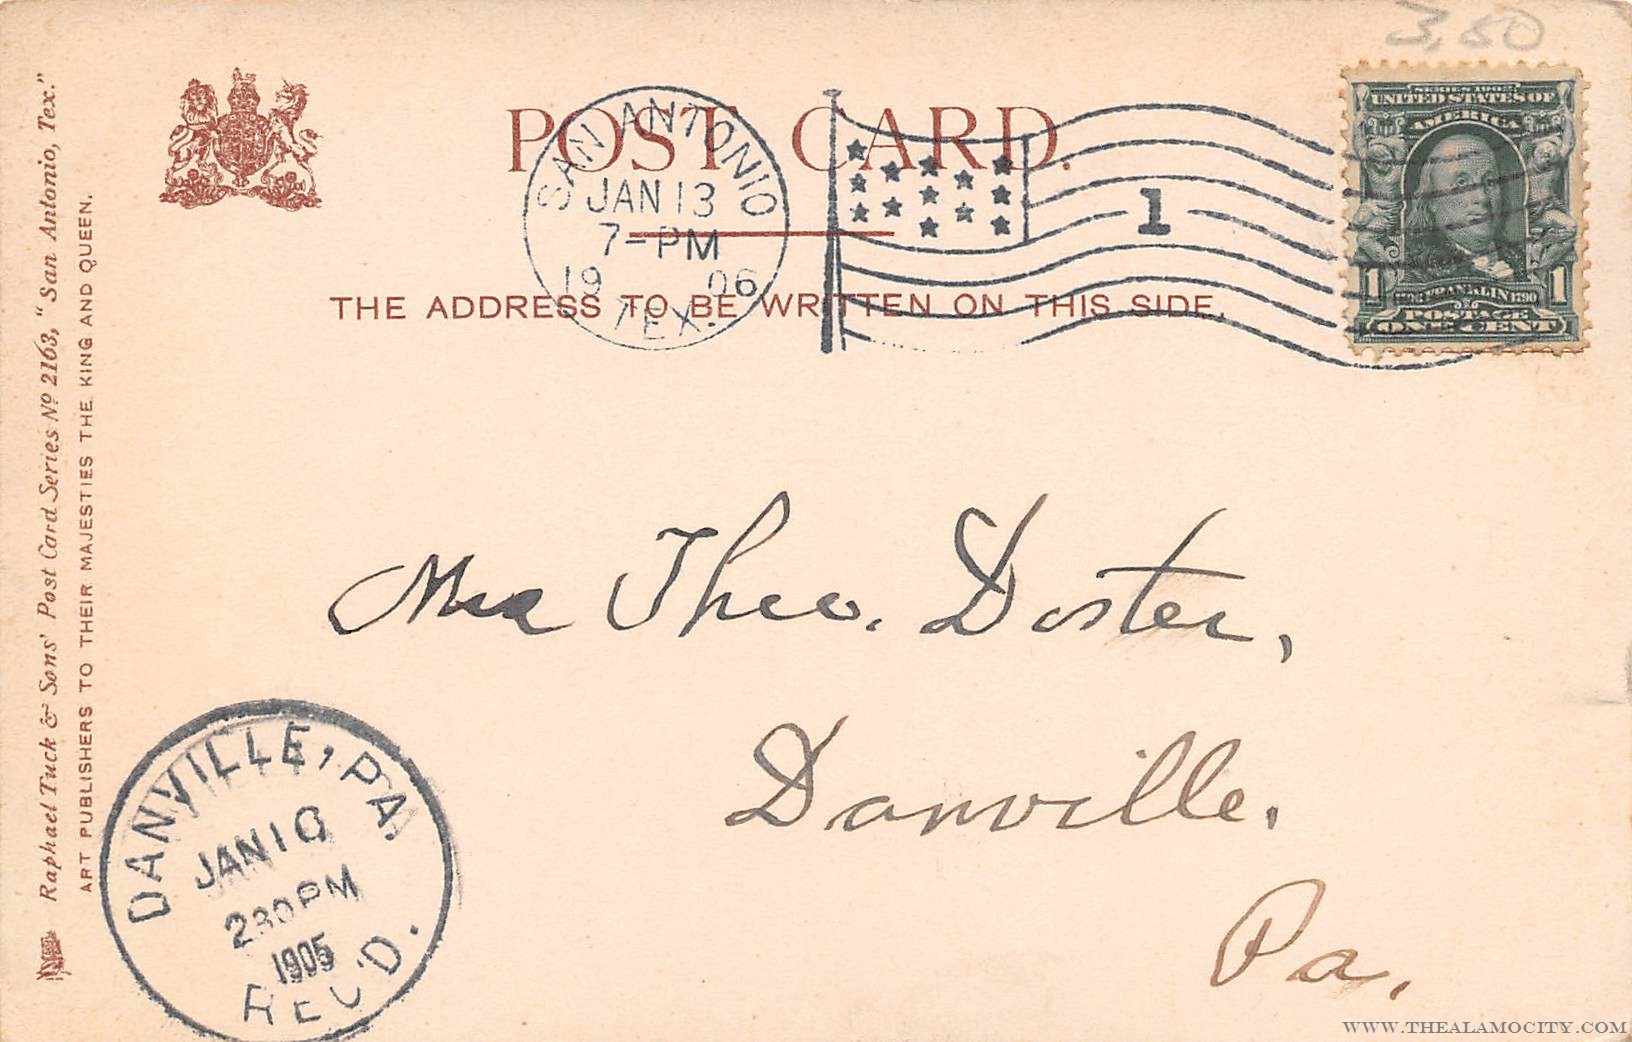 3,50
POST CARD.
SAN ANTONIO
JAN 13
7-PM
19 06
TEX.
1
SERIES 1902
UNITED STATES OF
AMERICA
1 FRANKLIN 1790 1
POSTAGE
ONE CENT
THE ADDRESS TO BE WRITTEN ON THIS SIDE.
Raphael Tuck & Sons' Post Card Series Nº 2163, "San Antonio, Tex."
ART PUBLISHERS TO THEIR MAJESTIES THE KING AND QUEEN.
Mrs Theo. Doster,
Danville.
Pa.
DANVILLE, PA.
JAN 16
230PM
REC'D.
WWW.THEALAMOCITY.COM